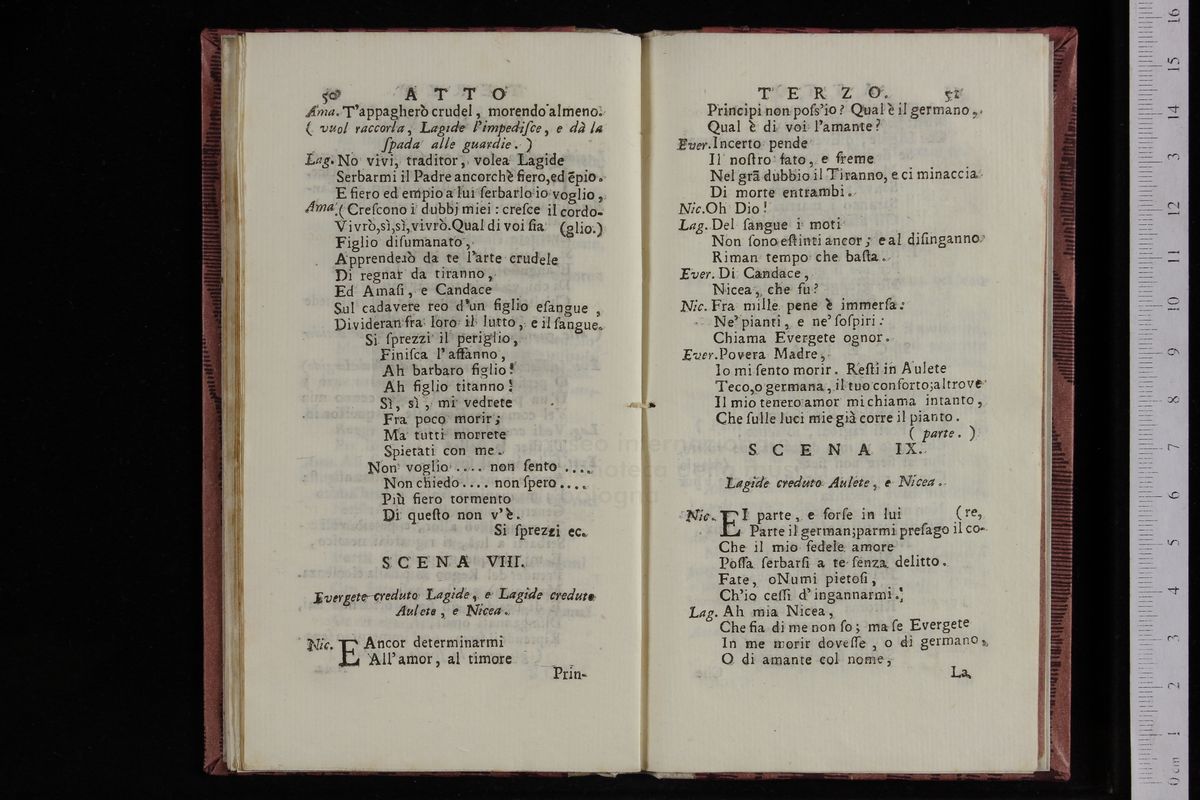 50 ATTO
Ama. T'appagherò crudel, morendo almeno.
( vuol raccorla, Lagide l'impediſce, e dà la
ſpada alle guardie. )
Lag. No vivi, traditor, volea Lagide
Serbarmi il Padre ancorchè fiero,ed ēpio.
E fiero ed empio a lui ſerbarlo io voglio,
Ama.( Creſcono i dubbj miei : creſce il cordo-
Vivrò,sì,sì,vivrò.Qual di voi ſia (glio.)
Figlio diſumanato,
Apprenderò da te l'arte crudele
Di regnar da tiranno,
Ed Amaſi, e Candace
Sul cadavere reo d'un figlio eſangue,
Divideran fra loro il lutto, e il ſangue.
Si ſprezzi il periglio,
Finiſca l'affanno,
Ah barbaro figlio!
Ah figlio titanno!
Sì, sì, mi vedrete
Fra poco morir;
Ma tutti morrete
Spietati con me.
Non voglio .... non ſento ....
Non chiedo .... non ſpero ....
Più fiero tormento
Di queſto non v'è.
Si ſprezzi ec.
SCENA VIII.
Evergete creduto Lagide, e Lagide creduto
Aulete, e Nicea.
Nic. E Ancor determinarmi
All'amor, al timore
Prin-
TERZO. 51
Principi non poſs'io? Qual è il germano,
Qual è di voi l'amante?
Ever.Incerto pende
Il noſtro fato, e freme
Nel grā dubbio il Tiranno, e ci minaccia
Di morte entrambi.
Nic.Oh Dio!
Lag. Del ſangue i moti
Non ſono eſtinti ancor; e al diſinganno
Riman tempo che baſta.
Ever. Di Candace,
Nicea, che fu?
Nic. Fra mille pene è immerſa:
Ne' pianti, e ne' ſoſpiri:
Chiama Evergete ognor.
Ever.Povera Madre,
Io mi ſento morir. Reſti in Aulete
Teco,o germana, il tuo conforto;altrove
Il mio tenero amor mi chiama intanto,
Che ſulle luci mie già corre il pianto.
( parte. )
SCENA IX.
Lagide creduto Aulete, e Nicea.
Nic. EI parte, e forſe in lui (re,
Parte il german;parmi preſago il co-
Che il mio fedele amore
Poſſa ſerbarſi a te ſenza delitto.
Fate, oNumi pietoſi,
Ch'io ceſſi d'ingannarmi.
Lag. Ah mia Nicea,
Che ſia di me non ſo; ma ſe Evergete
In me morir doveſſe, o di germano,
O di amante col nome,
La